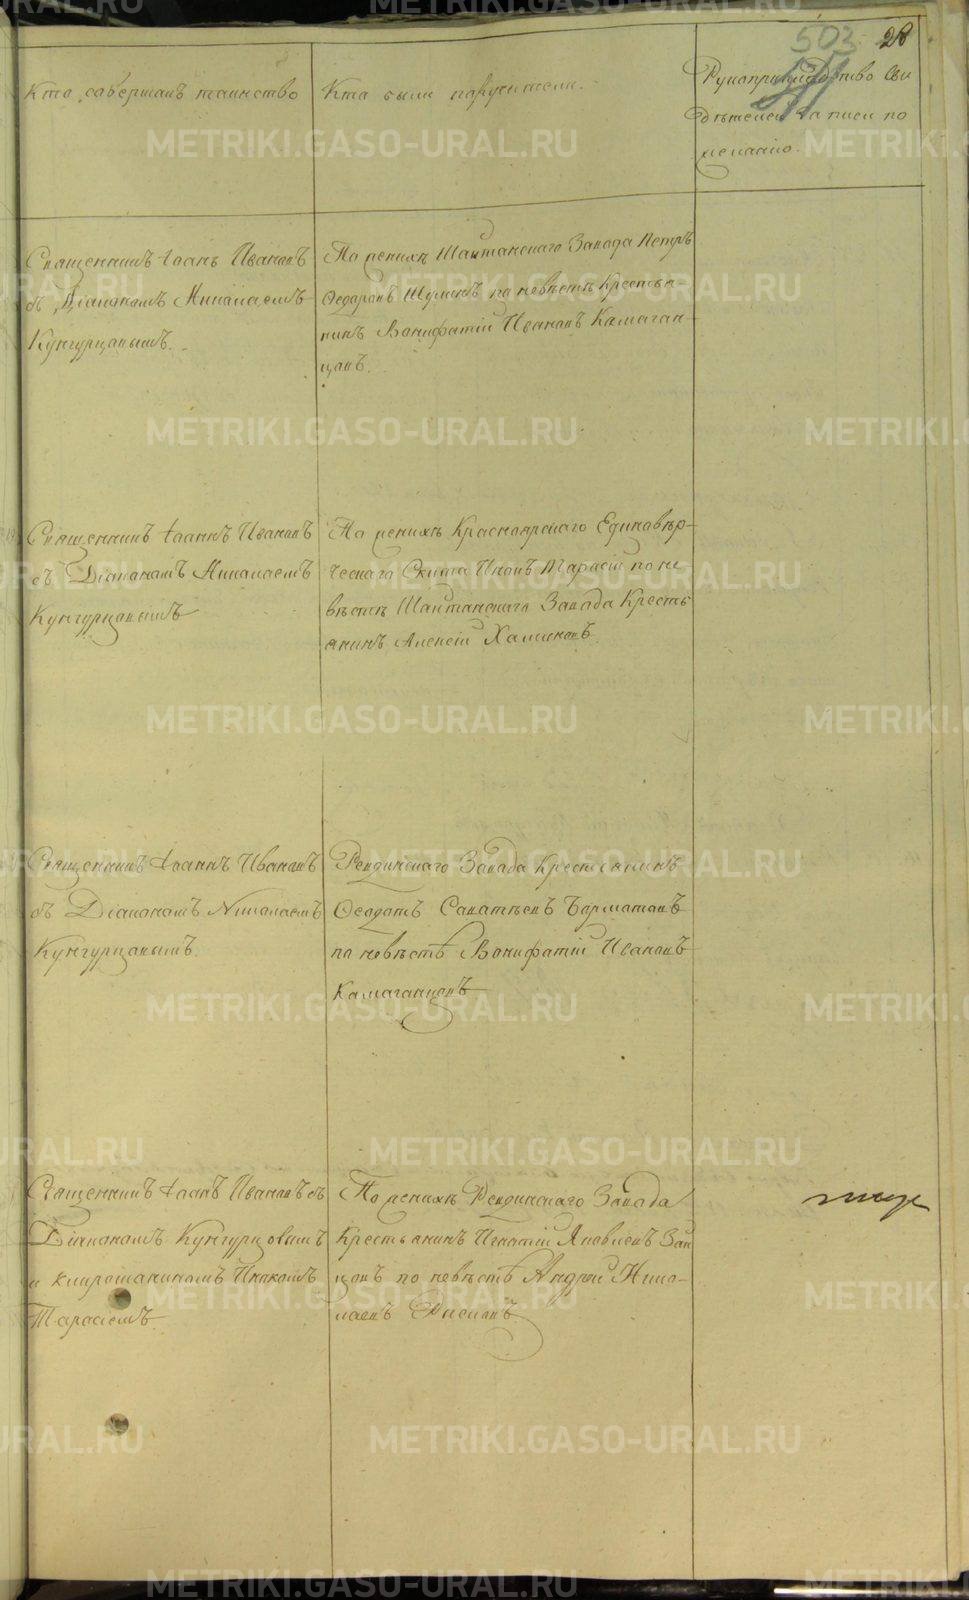 503
28
Кто совершалъ таинство
Кто были поручители.
Рукоприкладство сви
дѣтелей записи по
желанію.
Священникъ Іоанъ Ивановъ
съ Діакономъ Николаемъ
Кунгурцовымъ.
По женихѣ Шайтанскаго Завода Петръ
Ѳедоровъ по невѣстѣ Крестья-
нинъ Вонифатій Ивановъ Камаган-
цовъ.
Священникъ Іоаннъ Ивановъ
съ Діакономъ Николаемъ
Кунгурцовымъ
По женихѣ Красноярскаго Единовѣр-
ческаго Скита Инокъ Тарасій по не
вѣстѣ Шайтанскаго Завода Кресть
янинъ Алексій
Священникъ Іоаннъ Ивановъ
съ Діакономъ Николаемъ
Кунгурцовымъ.
Ревдинскаго Завода Крестьянинъ
Ѳеодотъ Саватѣевъ
по невѣстѣ Вонифатій Ивановъ
Камаганцовъ
Священникъ Іоанъ Ивановъ съ
Діакономъ Кунгурцовымъ
и клирошаниномъ Инокомъ
Тарасіемъ.
По женихѣ Ревдинскаго Завода
Крестьянинъ Игнатій Яковлевъ Зай
цовъ по невѣстѣ Андрей Нико-
лаевъ
METRIKI.GASO-URAL.RU